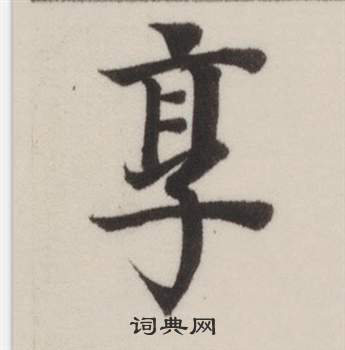 享
词典网